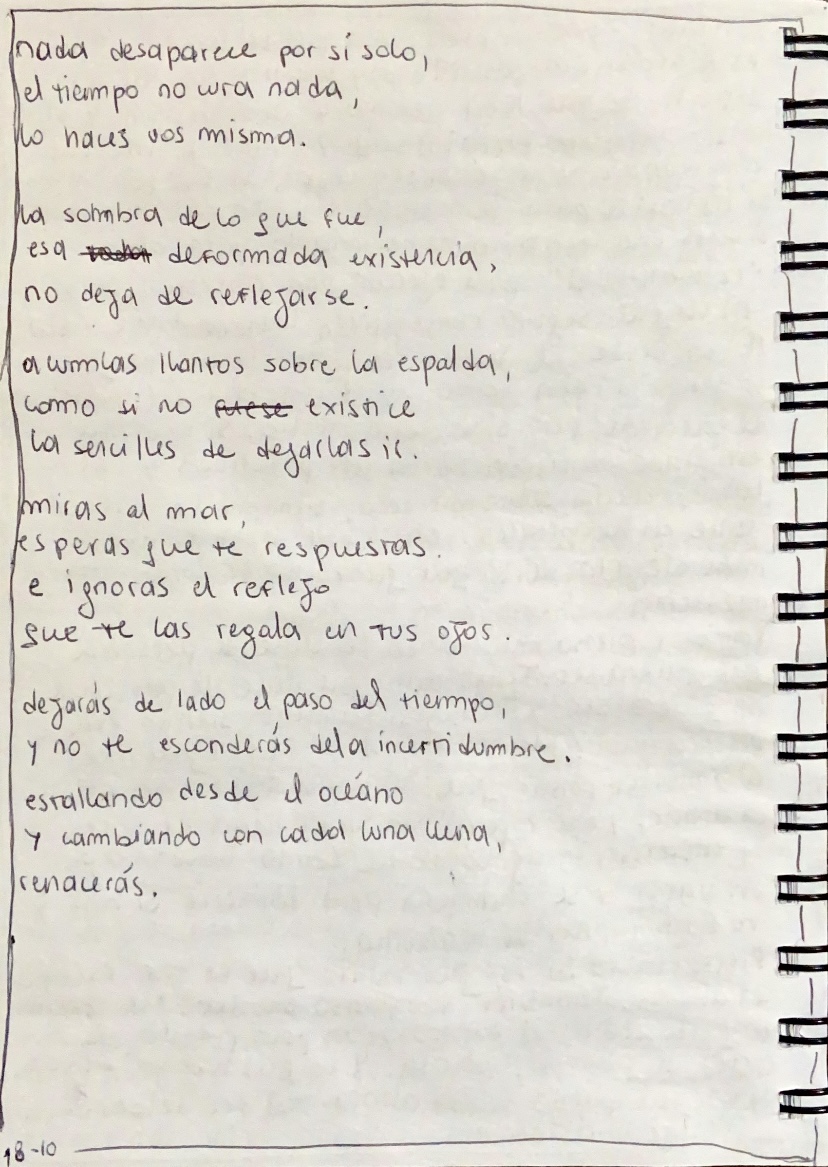 nada desaparece por sí solo,
el tiempo no cura nada,
lo haces vos misma.
la sombra de lo que fue,
esa deformada existencia,
no deja de reflejarse.
acumlas llantos sobre la espalda,
como si no fuese existice
la sencilles de dejarlas ir.
miras al mar,
esperas que te respuestas.
e ignoras el reflejo
que te las regala en tus ojos.
dejarás de lado el paso del tiempo,
y no te esconderás dela incertidumbre.
estallando desde el océano
y cambiando con cada luna llena,
renacerás.
18-10